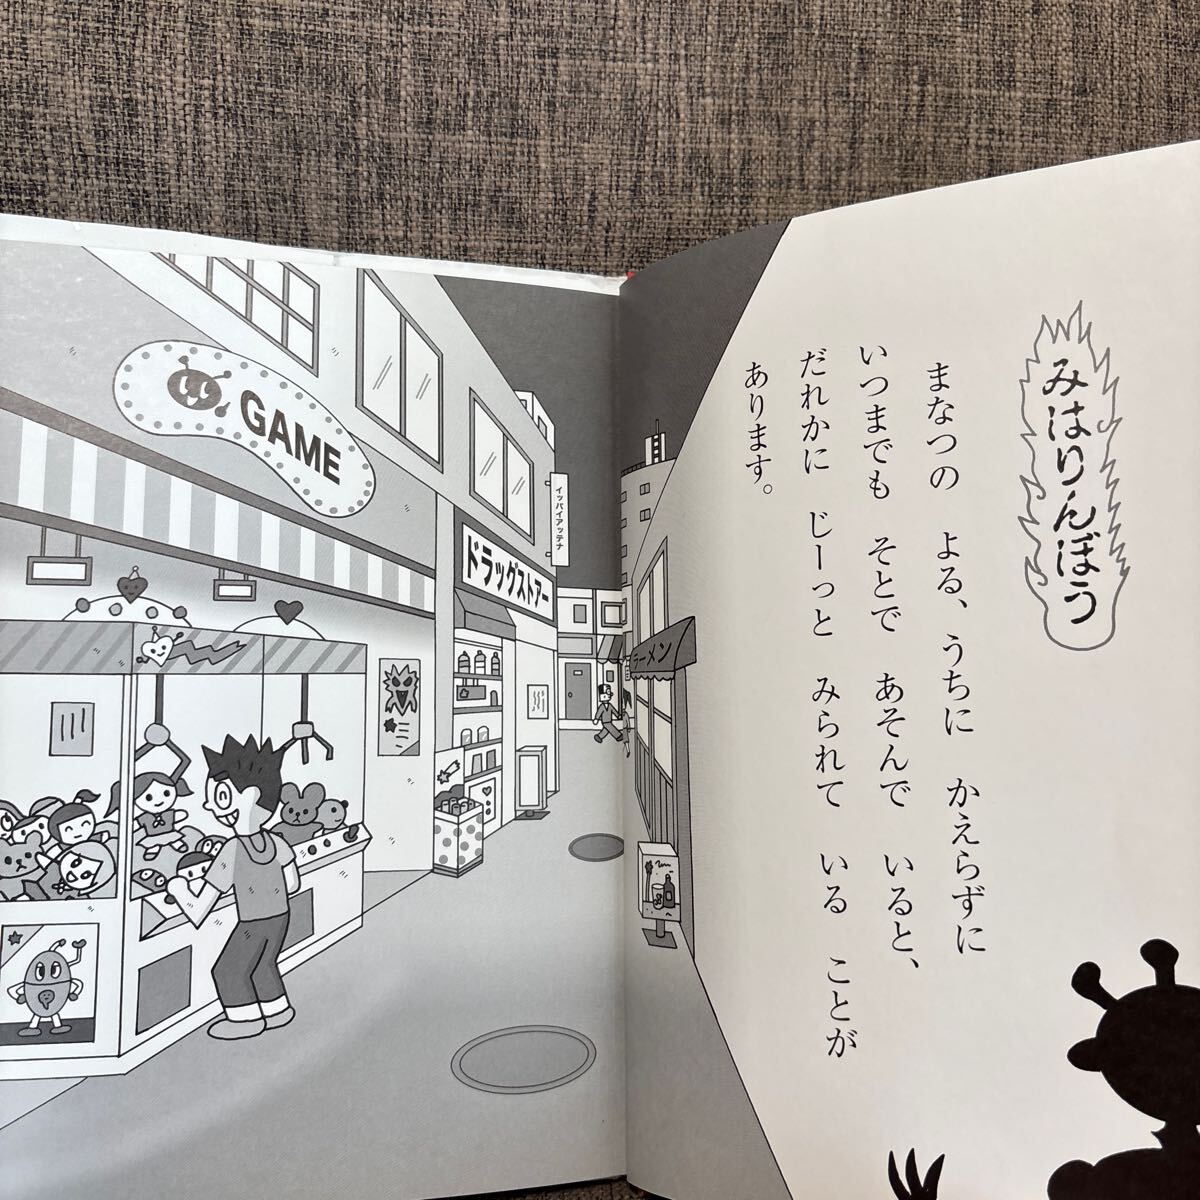 みはりんぼう
まなつの よる、うちに かえらずに
いつまでも そとで あそんで いると、
だれかに じーっと みられて いる ことが
あります。
GAME
ドラッグストアー
イッパイアッテナ
ラーメン